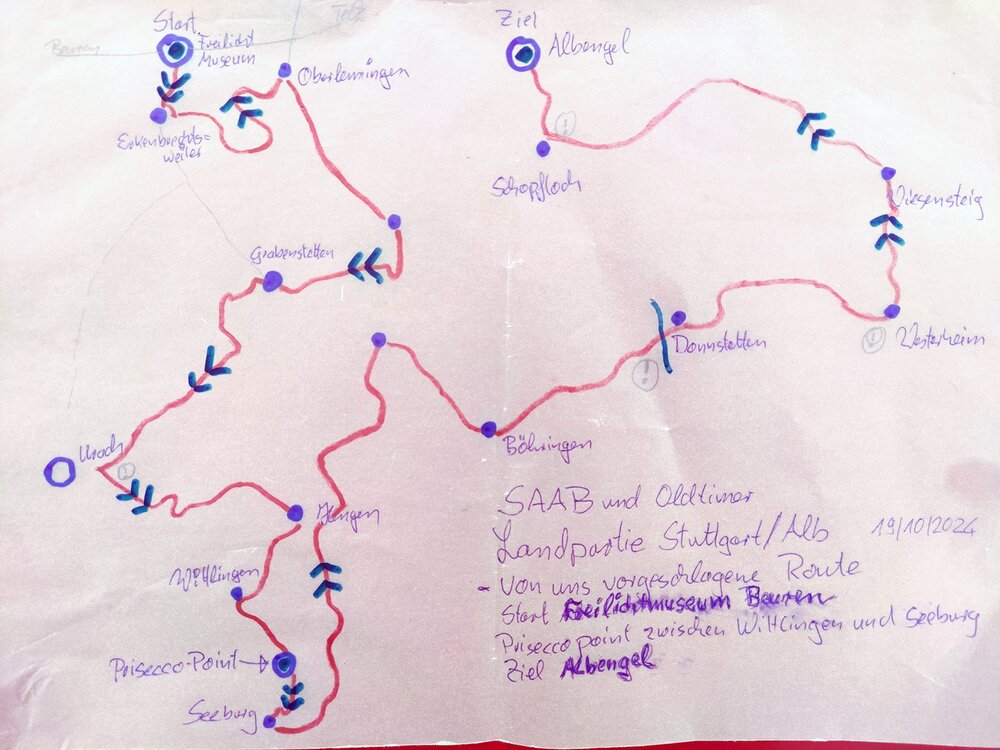 Start
Freilicht
Museum
Beuren
Oberlenningen
Ziel
Albengel
Schopfloch
Wiesensteig
Grabenstetten
Donnstetten
Westerheim
Urach
Böhringen
Wittlingen
Prisecco-Point
Seeburg
SAAB und Oldtimer
Landpartie Stuttgart/Alb 19/10/2024
- Von uns vorgeschlagene Route
Start Freilichtmuseum Beuren
Prisecco point zwischen Wittlingen und Seeburg
Ziel Albengel